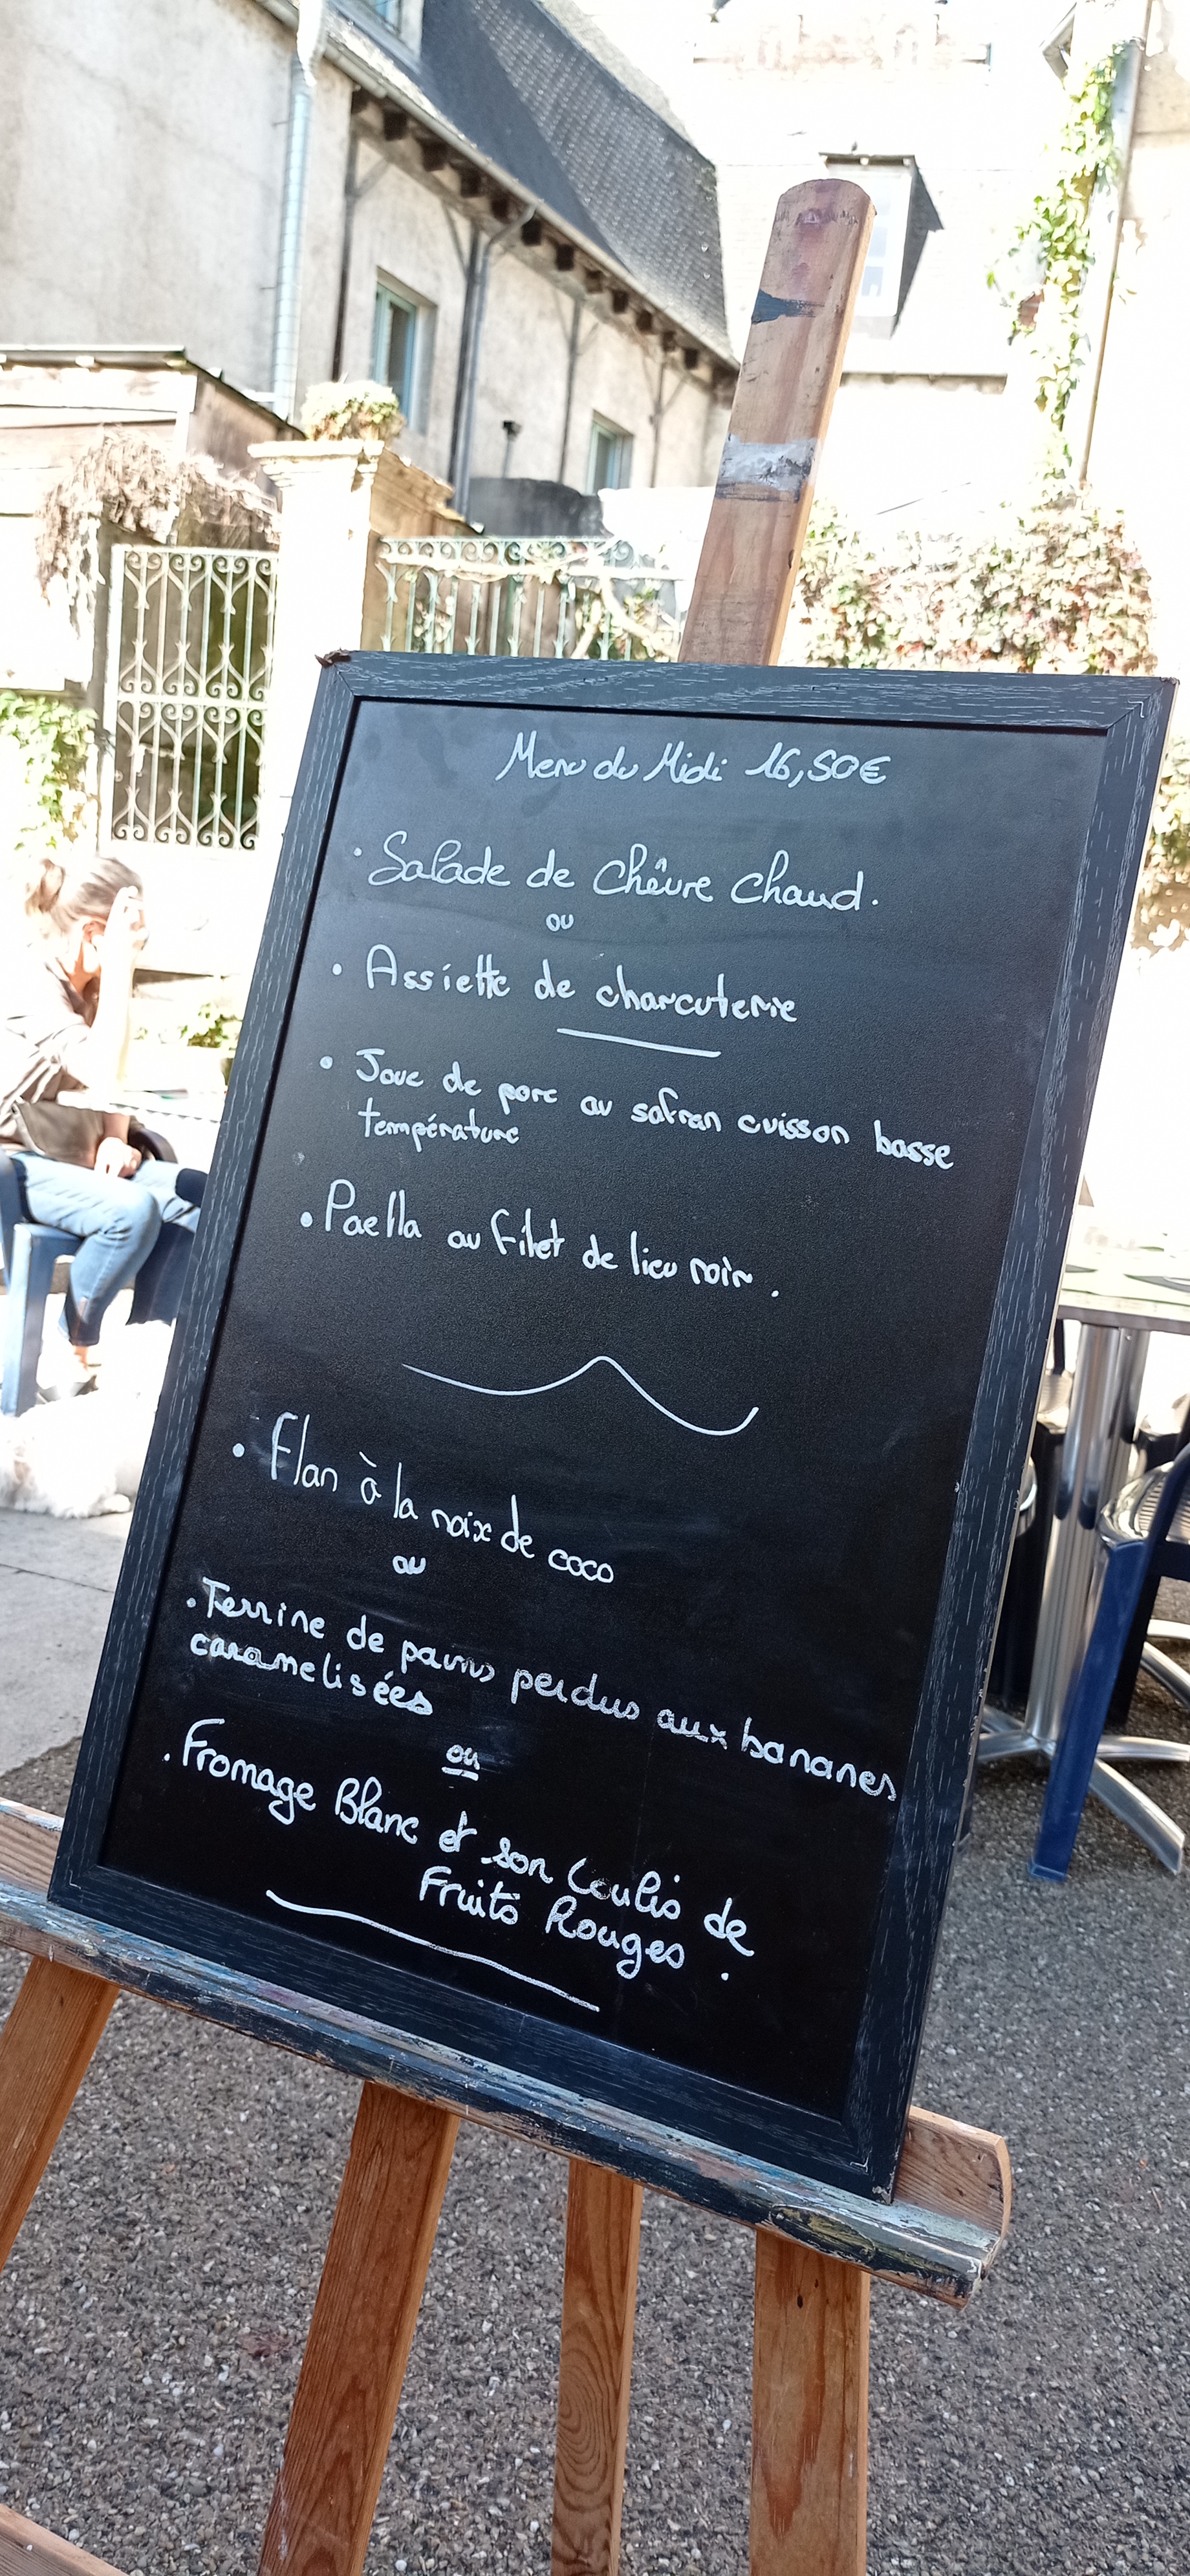 Menu du Midi 16,50€
• Salade de Chêvre Chaud.
ou
• Assiette de charcuterie
• Joue de porc au safran cuisson basse
température
• Paella au filet de lieu noir.
• Flan à la noix de coco
ou
• Terrine de pains perdus aux bananes
caramelisées
ou
• Fromage Blanc et son Coulis de
Fruits Rouges.